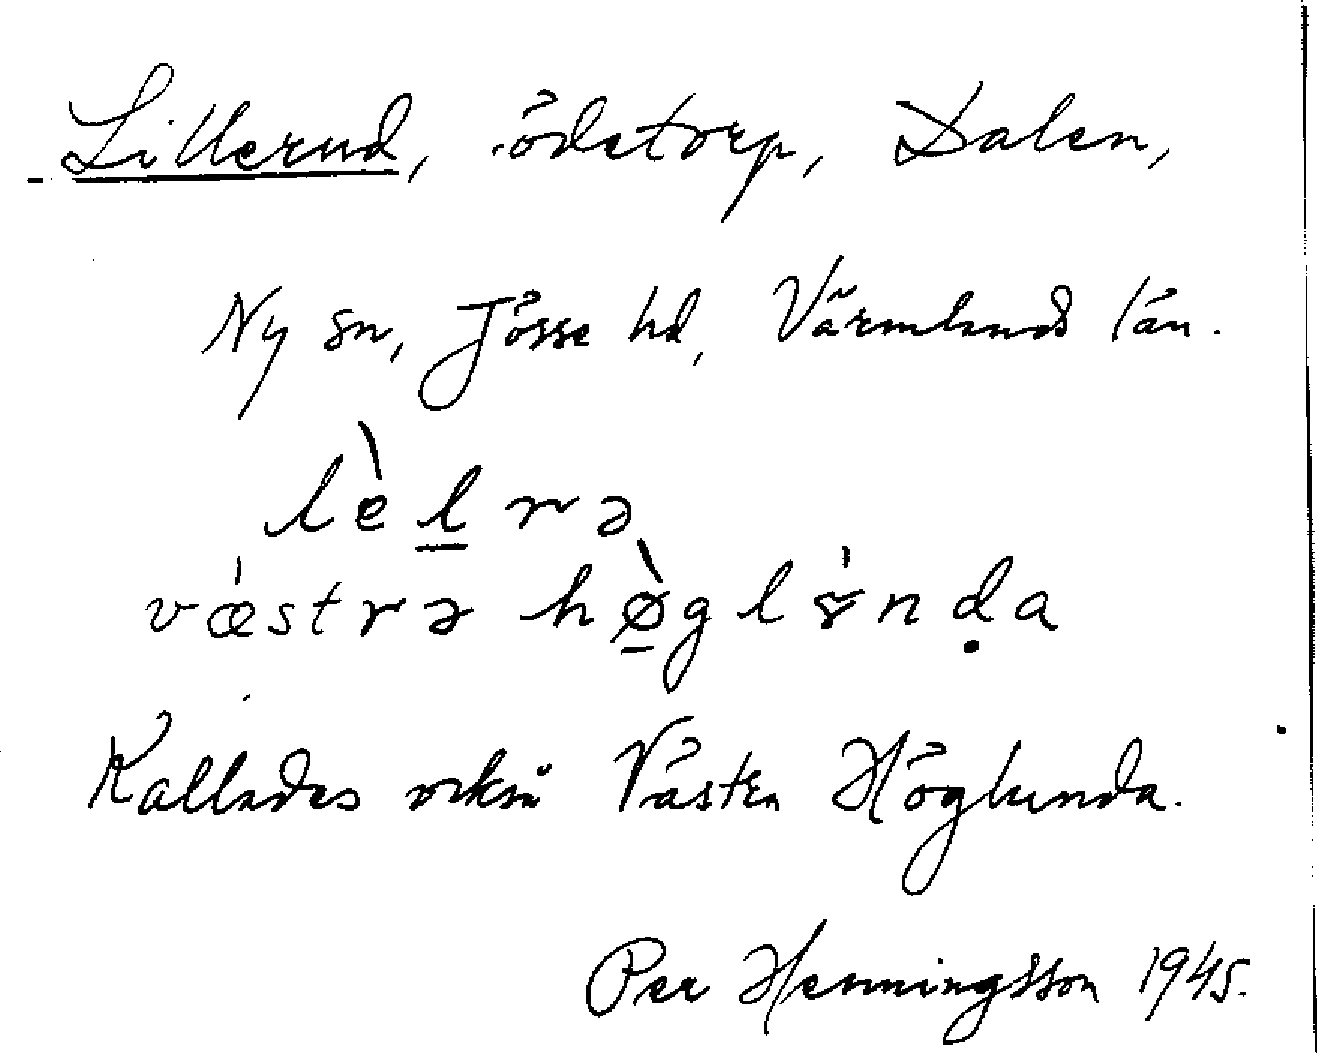 Lillerud, ödetorp, Dalen,
Ny sn, Jösse hd, Värmlands län.
lèl̲rə
vǽstrə hø̲̀gl nḍa
Kallades också Västra Höglunda.
Per Henningsson 1945.